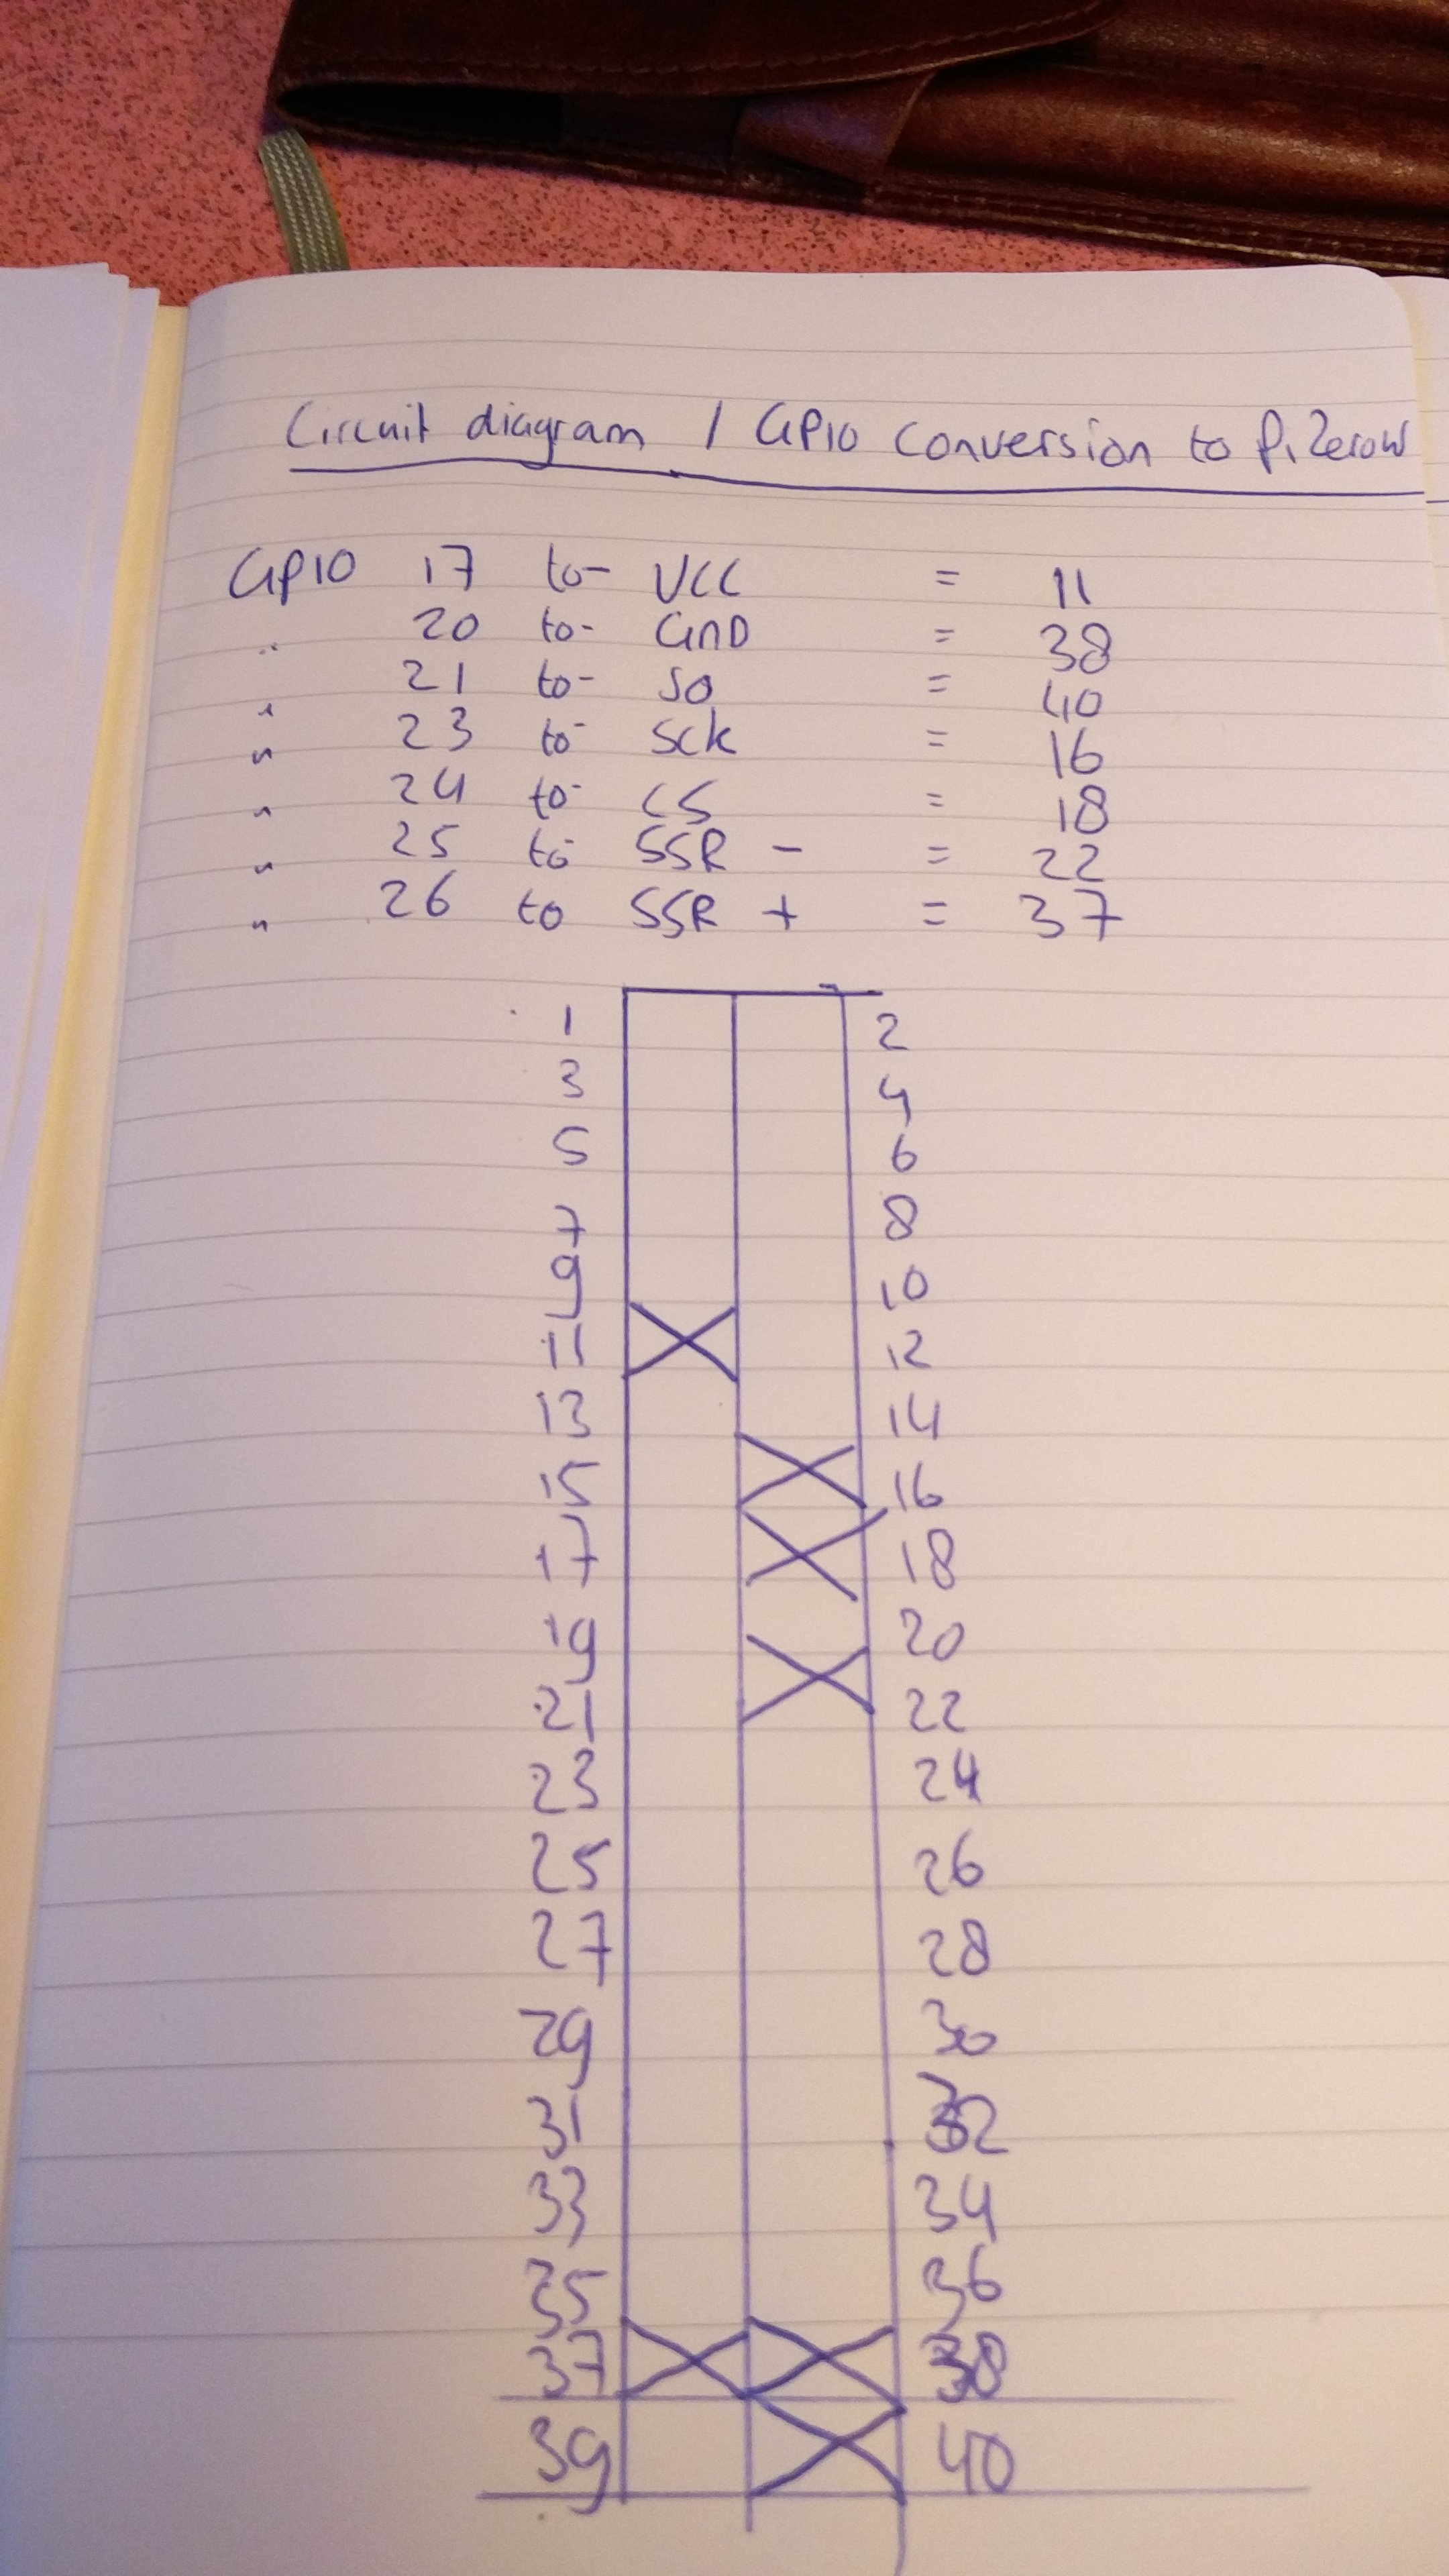 Circuit diagram / GPIO conversion to PiZeroW
GPIO 17 to- VCC = 11
" 20 to- GND = 38
" 21 to- SO = 40
" 23 to- SCK = 16
" 24 to- CS = 18
" 25 to- SSR - = 22
" 26 to SSR + = 37
1 2
3 4
5 6
7 8
9 10
11 12
13 14
15 16
17 18
19 20
21 22
23 24
25 26
27 28
29 30
31 32
33 34
35 36
37 38
39 40